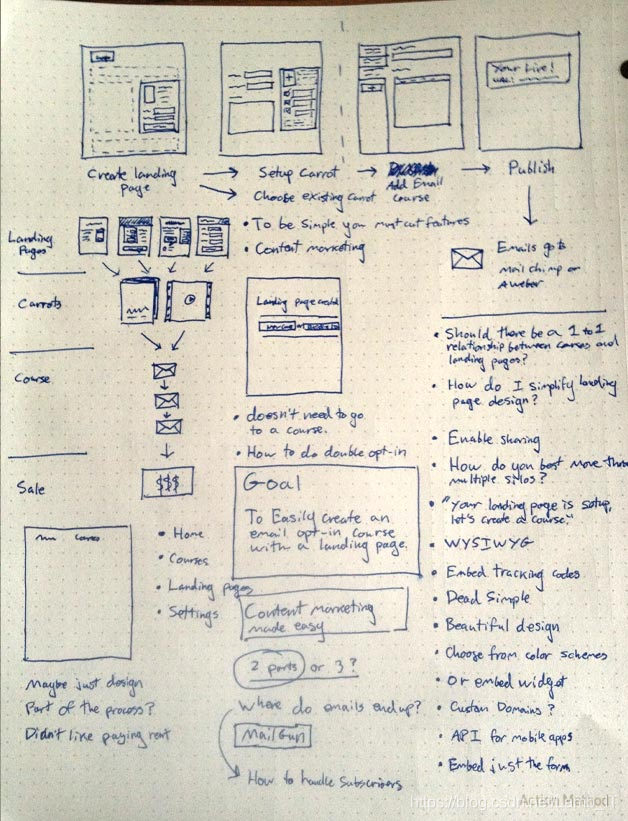 Your Live!
URL:
Create landing
page
Setup Carrot
Choose existing carrot
Add Email
Course
Publish
Emails go to
mail chimp or
Aweber
Landing
Pages
• To be simple you must cut features
• Content marketing
Carrots
Landing page created
Course
• doesn't need to go
to a course.
• How to do double opt-in
Sale
$$$
Goal
To Easily create an
email opt-in course
with a landing page.
Content marketing
made easy
2 parts or 3?
Where do emails end up?
MailGun
How to handle subscribers
• Home
• Courses
• Landing pages
• Settings
Maybe just design
Part of the process?
Didn't like paying rent
• Should there be a 1 to 1
relationship between courses and
landing pages?
• How do I simplify landing
page design?
• Enable sharing
• How do you best move through
multiple silos?
• "Your landing page is setup,
let's create a course."
• WYSIWYG
• Embed tracking codes
• Dead Simple
• Beautiful design
• Choose from color schemes
• Or embed widget
• Custom Domains?
• API for mobile apps
• Embed just the form
Action Method